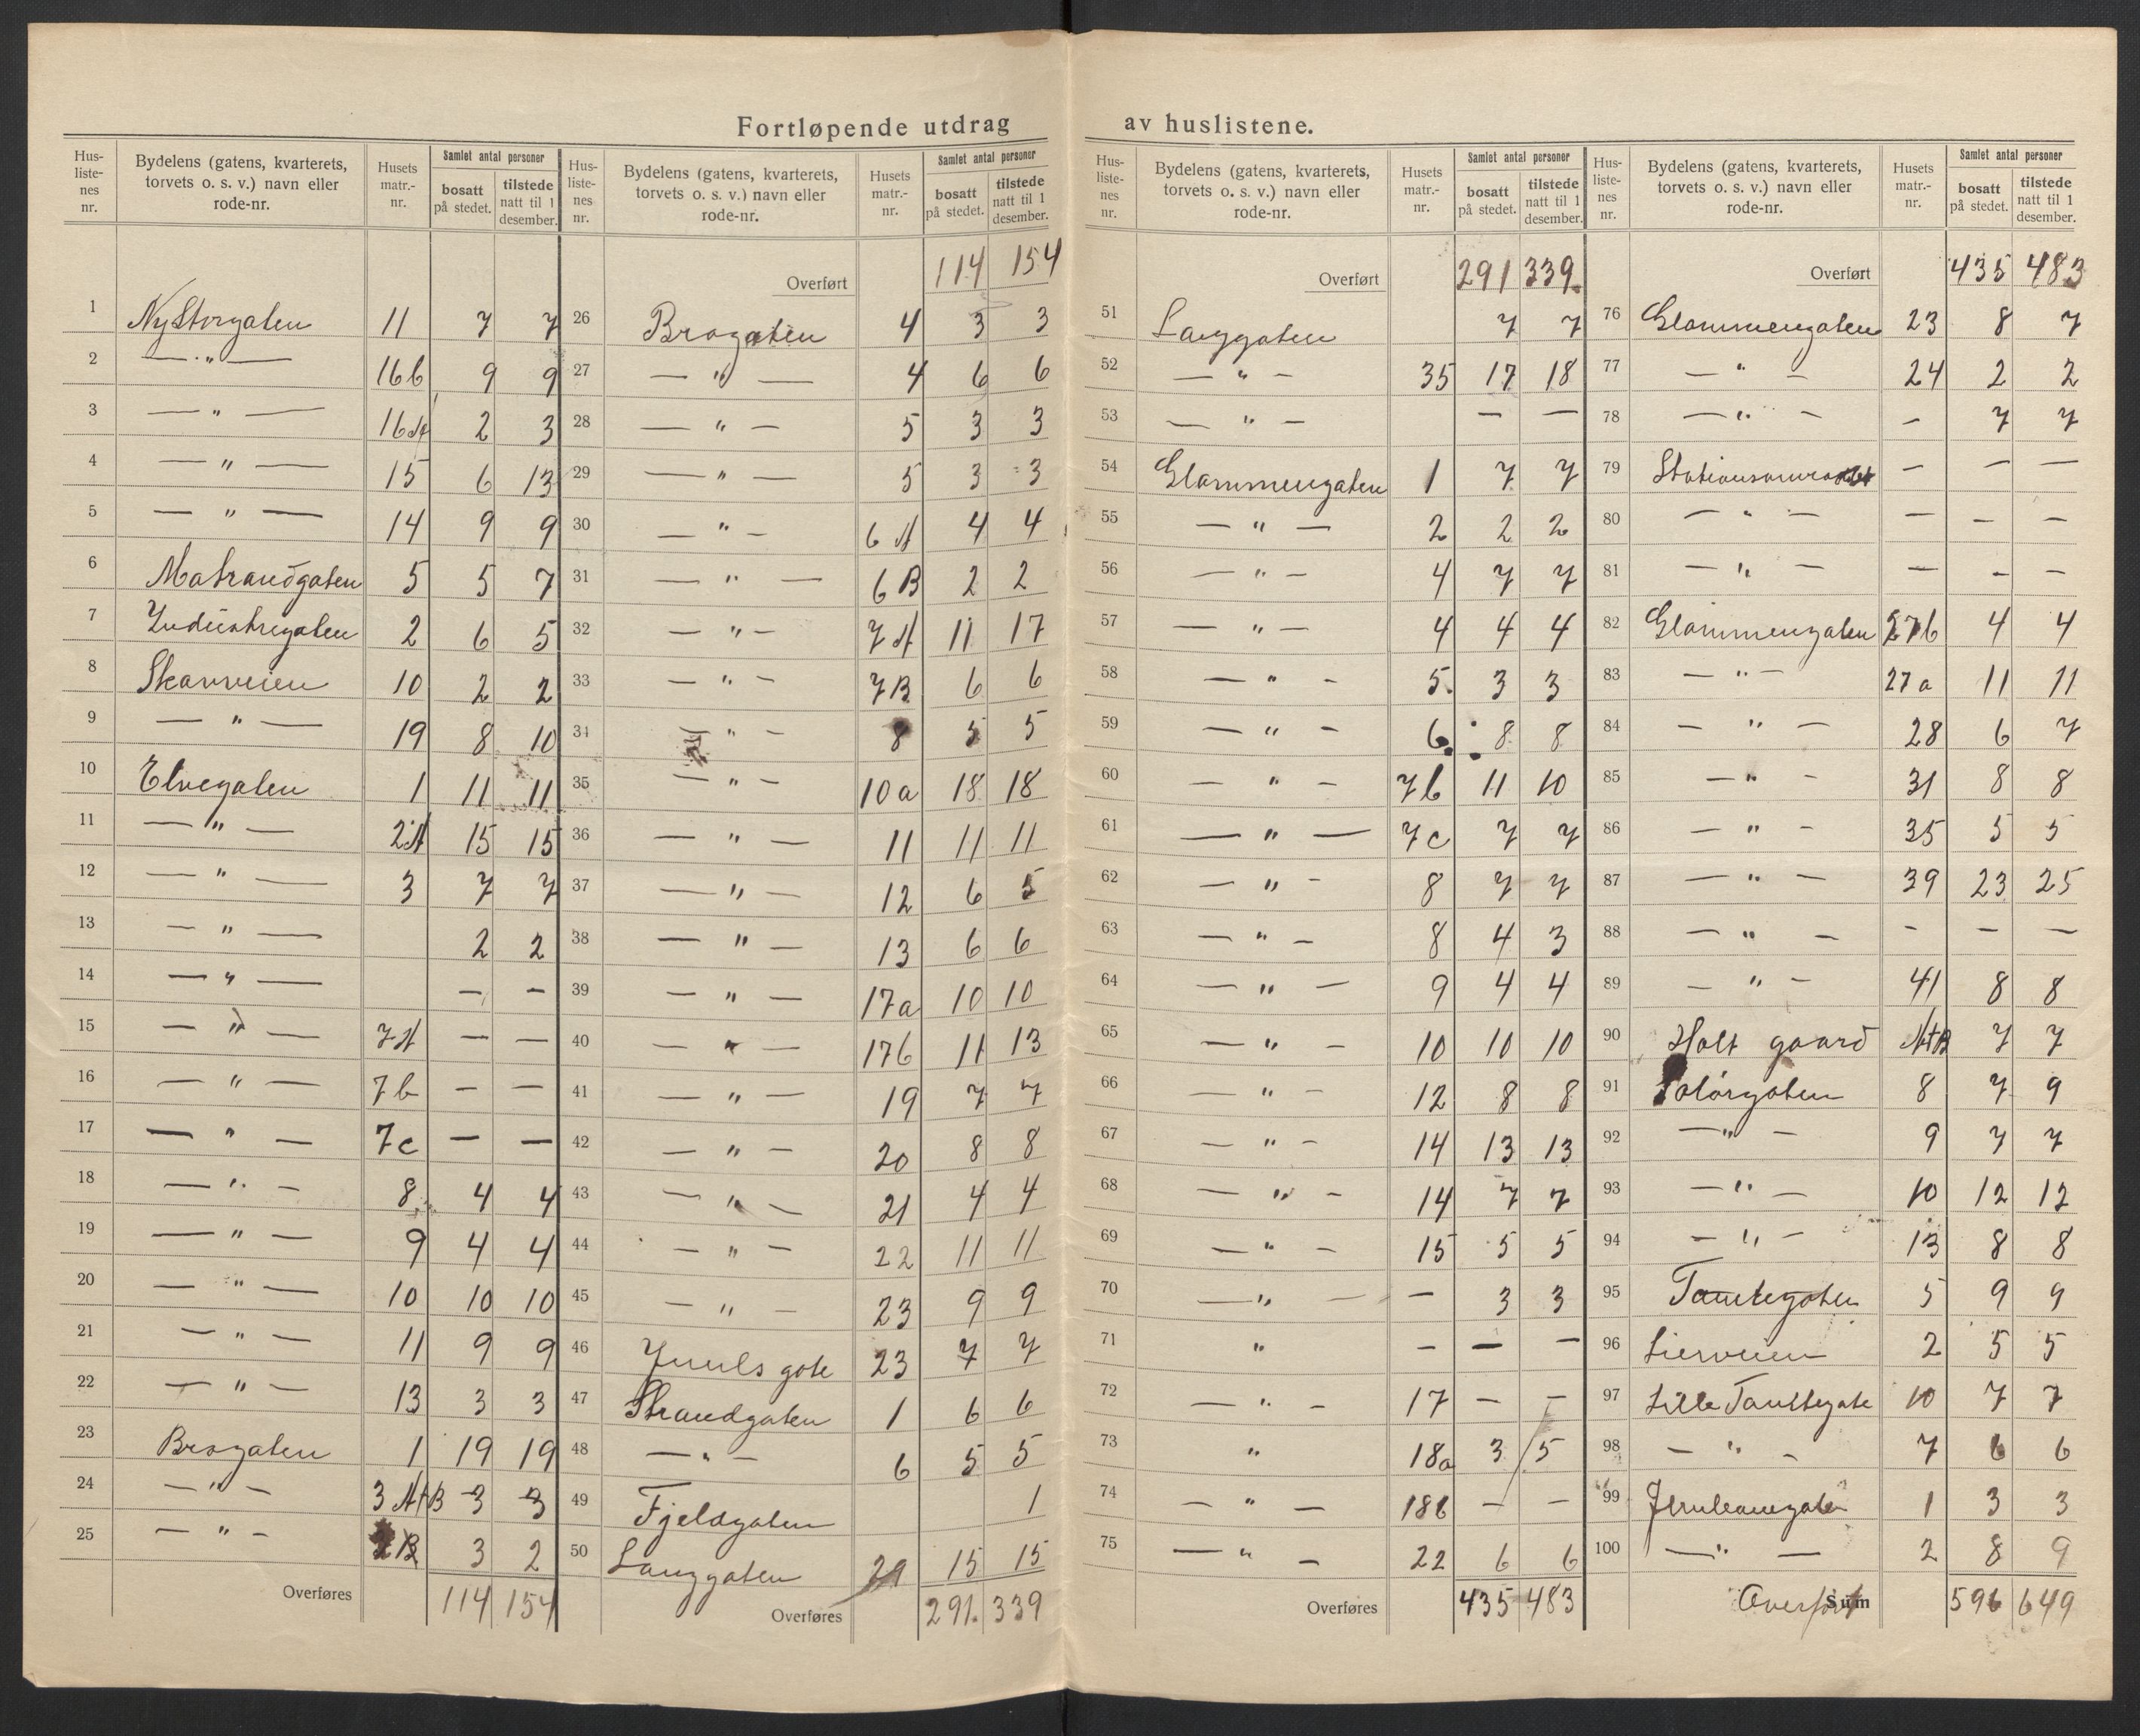 Fortløpende utdrag av huslistene.
Hus-listenes nr. | Bydelens (gatens, kvarterets, torvets o. s. v.) navn eller rode-nr. | Husets matr.-nr. | Samlet antal personer bosatt på stedet. | tilstede natt til 1 desember.
1 Ny Storgaten 11 7 7
2 — " — 16b 9 9
3 — " — 16A 2 3
4 — " — 15 6 13
5 — " — 14 9 9
6 Matrandgaten 5 5 7
7 Industrigaten 2 6 5
8 Skarrveien 10 2 2
9 — " — 19 8 10
10 Elvegaten 1 11 11
11 — " — 2A 15 15
12 — " — 3 7 7
13 — " — 2 2
14 — " — — —
15 — " — 7A — —
16 — " — 7b — —
17 — " — 7c — —
18 — " — 8 4 4
19 — " — 9 4 4
20 — " — 10 10 10
21 — " — 11 9 9
22 — " — 13 3 3
23 Brogaten 1 19 19
24 — " — 3 A+B 3 3
25 — " — 3 2
Overføres 114 154
Hus-listenes nr. | Bydelens (gatens, kvarterets, torvets o. s. v.) navn eller rode-nr. | Husets matr.-nr. | Samlet antal personer bosatt på stedet. | tilstede natt til 1 desember.
Overført 114 154
26 Brogaten 4 3 3
27 — " — 4 6 6
28 — " — 5 3 3
29 — " — 5 3 3
30 — " — 6 A 4 4
31 — " — 6 B 2 2
32 — " — 7 A 11 17
33 — " — 7B 6 6
34 — " — 8 5 5
35 — " — 10a 18 18
36 — " — 11 11 11
37 — " — 12 6 5
38 — " — 13 6 6
39 — " — 17a 10 10
40 — " — 17b 11 13
41 — " — 19 7 7
42 — " — 20 8 8
43 — " — 21 4 4
44 — " — 22 11 11
45 — " — 23 9 9
46 Juuls gate 23 7 7
47 Strandgaten 1 6 6
48 — " — 6 5 5
49 Fjeldgaten 1
50 Langgaten 15 15
Overføres 291 339
Hus-listenes nr. | Bydelens (gatens, kvarterets, torvets o. s. v.) navn eller rode-nr. | Husets matr.-nr. | Samlet antal personer bosatt på stedet. | tilstede natt til 1 desember.
Overført 291 339
51 Langgaten 7 7
52 — " — 35 17 18
53 — " — — —
54 Glommengaten 1 7 7
55 — " — 2 2 2
56 — " — 4 7 7
57 — " — 4 4 4
58 — " — 5 3 3
59 — " — 6 8 8
60 — " — 7b 11 10
61 — " — 7c 7 7
62 — " — 8 7 7
63 — " — 8 4 3
64 — " — 9 4 4
65 — " — 10 10 10
66 — " — 12 8 8
67 — " — 14 13 13
68 — " — 14 7 7
69 — " — 15 5 5
70 — " — — 3 3
71 " — — —
72 — " — 17 — —
73 " 18a 3 5
74 — " — 18b — —
75 — " — 22 6 6
Overføres 435 483
Hus-listenes nr. | Bydelens (gatens, kvarterets, torvets o. s. v.) navn eller rode-nr. | Husets matr.-nr. | Samlet antal personer bosatt på stedet. | tilstede natt til 1 desember.
Overført 435 483
76 Glommengaten 23 8 7
77 — " — 24 2 2
78 — " — — 7 7
79 — — —
80 — " — — — —
81 — " — — — —
82 Glommengaten 27b 4 4
83 — " — 27a 11 11
84 — " — 28 6 7
85 — " — 31 8 8
86 — " — 35 5 5
87 — " — 39 23 25
88 — " — — — —
89 — " — 41 8 8
90 Holt gaard A+B 7 7
91 Solørgaten 8 7 9
92 — " — 9 7 7
93 — " — 10 12 12
94 — " — 13 8 8
95 Tomtegaten 5 9 9
96 Lierveien 2 5 5
97 Lille Tomtegate 10 7 7
98 — " — 7 6 6
99 1 3 3
100 — " — 2 8 9
Overført Sum 596 649